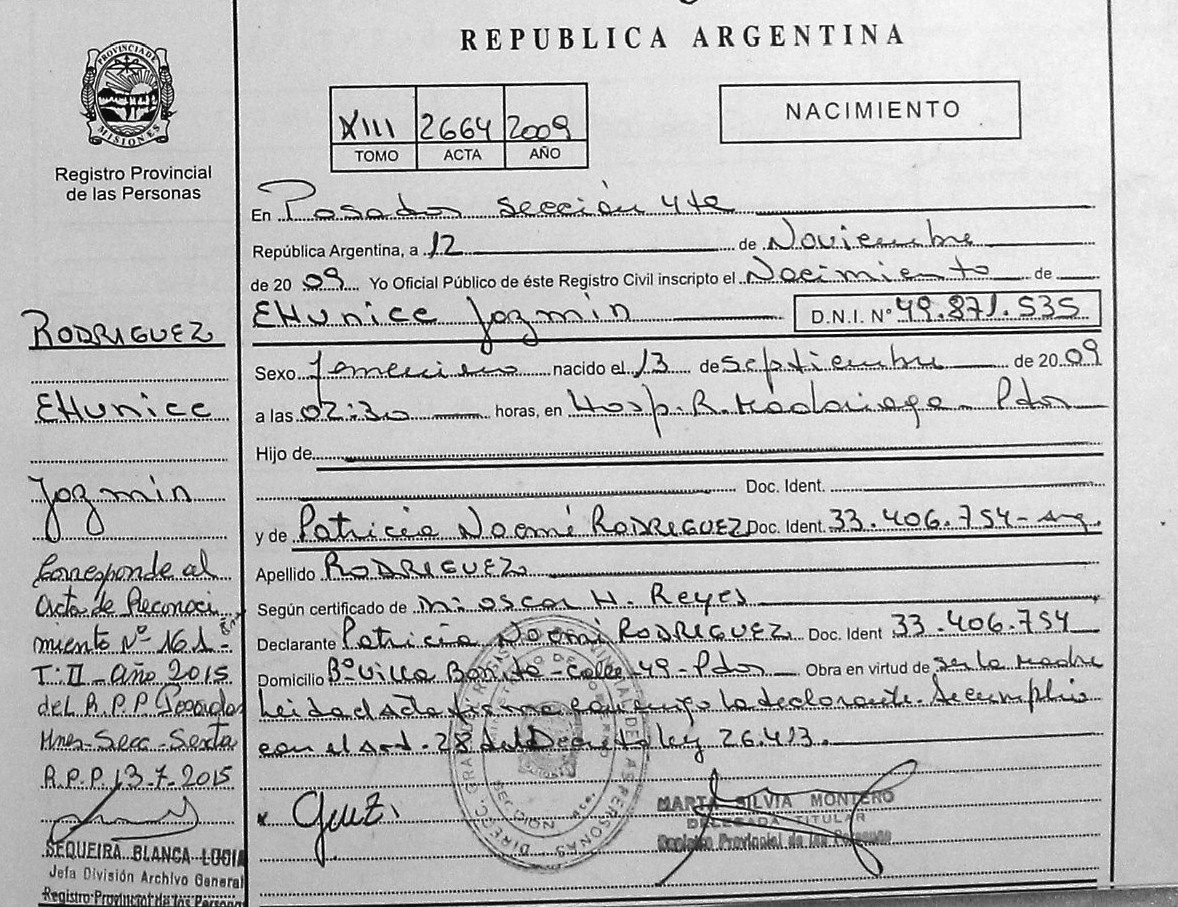 REPUBLICA ARGENTINA
PROVINCIA DE MISIONES
Registro Provincial
de las Personas
XIII 2664 2009
TOMO ACTA AÑO
NACIMIENTO
En Posadas Sección 4ta
República Argentina, a 12 de Noviembre
de 2009 Yo Oficial Público de éste Registro Civil inscripto el Nacimiento de
EHunice Jazmin D.N.I. N° 49.871.535
Sexo femenino nacido el 13 de Septiembre de 2009
a las 02:30 horas, en Hosp. R. Madariaga - Pdas
Hijo de
Doc. Ident.
y de Patricia Noemí RODRIGUEZ Doc. Ident. 33.406.754 - Arg.
Apellido RODRIGUEZ
Según certificado de Oscar H. Reyes
Declarante Patricia Noemí RODRIGUEZ Doc. Ident 33.406.754
Domicilio B° Villa Bonita - Calle 49 - Pdas Obra en virtud de ser la madre
Leida el acta firma conmigo la declarante. Se cumplio
con el Art. 28 del Decreto ley 26.413.
RODRIGUEZ
EHunice
Jazmin
Corresponde al
Acta de Reconoci
miento N° 161-
T: II - Año 2015
del R.P.P. Posadas
Mnes - Secc - Sexta
R.P.P. 13-7-2015
SEQUEIRA BLANCA LUCIA
Jefa División Archivo General
Registro Provincial de las Personas
MARTA SILVIA MONTERO
DELEGADA TITULAR
Registro Provincial de las Personas
SECCION 4ta.